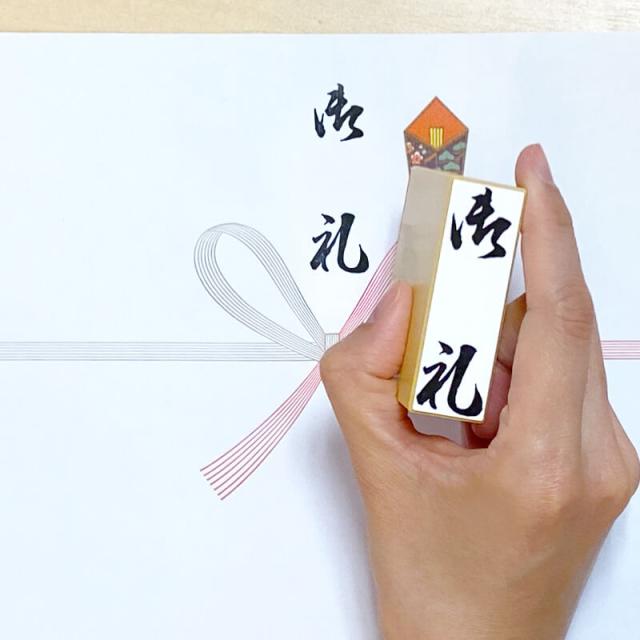 御礼
御礼